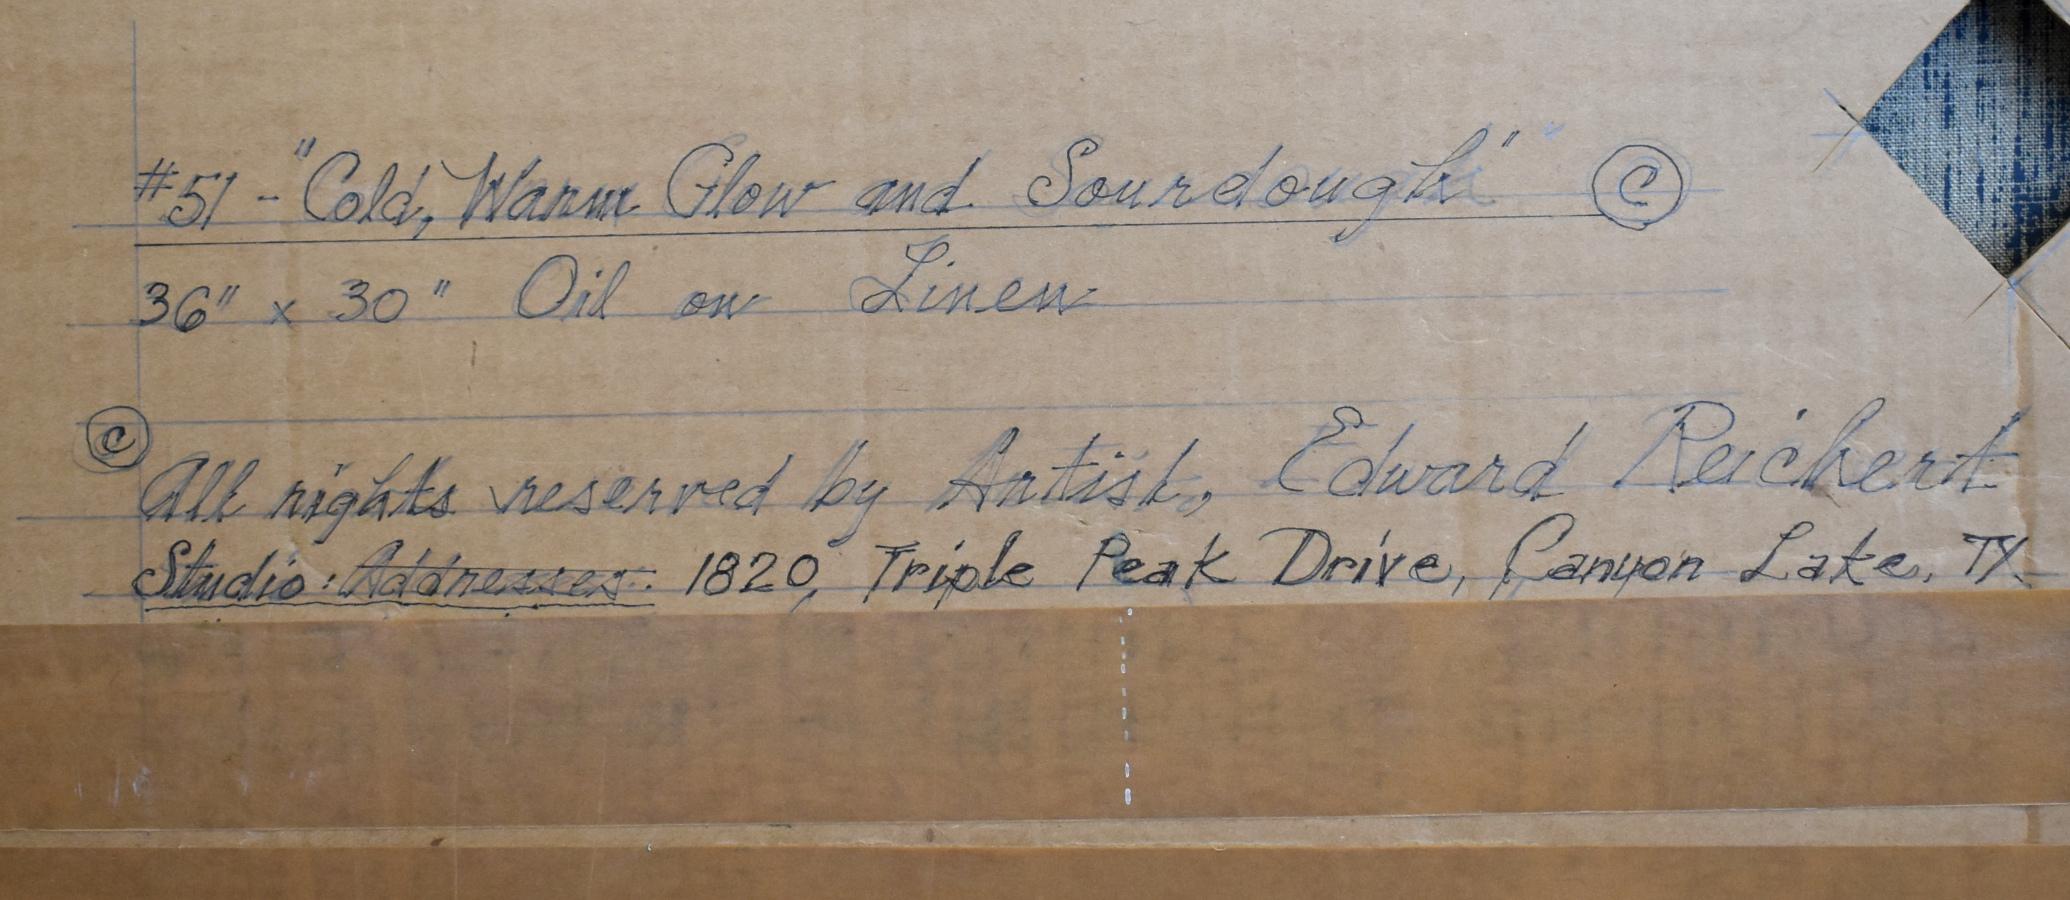 #51 - "Cold, Warm Glow and Sourdough" ©
36" x 30" Oil on Linen
©
All rights reserved by Artist, Edward Reichert
Studio: Addresses: 1820, Triple Peak Drive, Canyon Lake, TX.